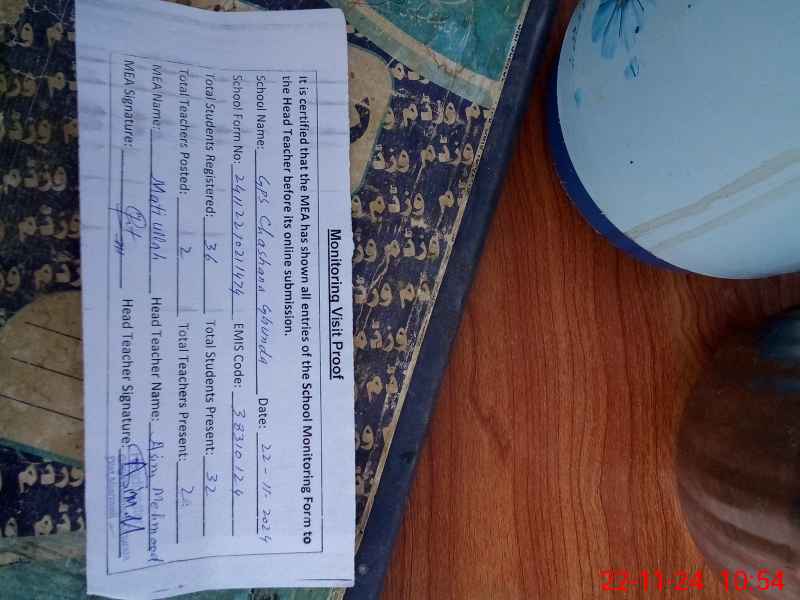 Monitoring Visit Proof
It is certified that the MEA has shown all entries of the School Monitoring Form to
the Head Teacher before its online submission.
School Name: GPS Chashana Ghunda Date: 22-11-2024
School Form No: 241122102111474 EMIS Code: 38310124
Total Students Registered: 36 Total Students Present: 32
Total Teachers Posted: 2 Total Teachers Present: 2
MEA Name: Mati ullah Head Teacher Name: Asim Mehmood
MEA Signature: Head Teacher Signature:
22-11-24 10:54